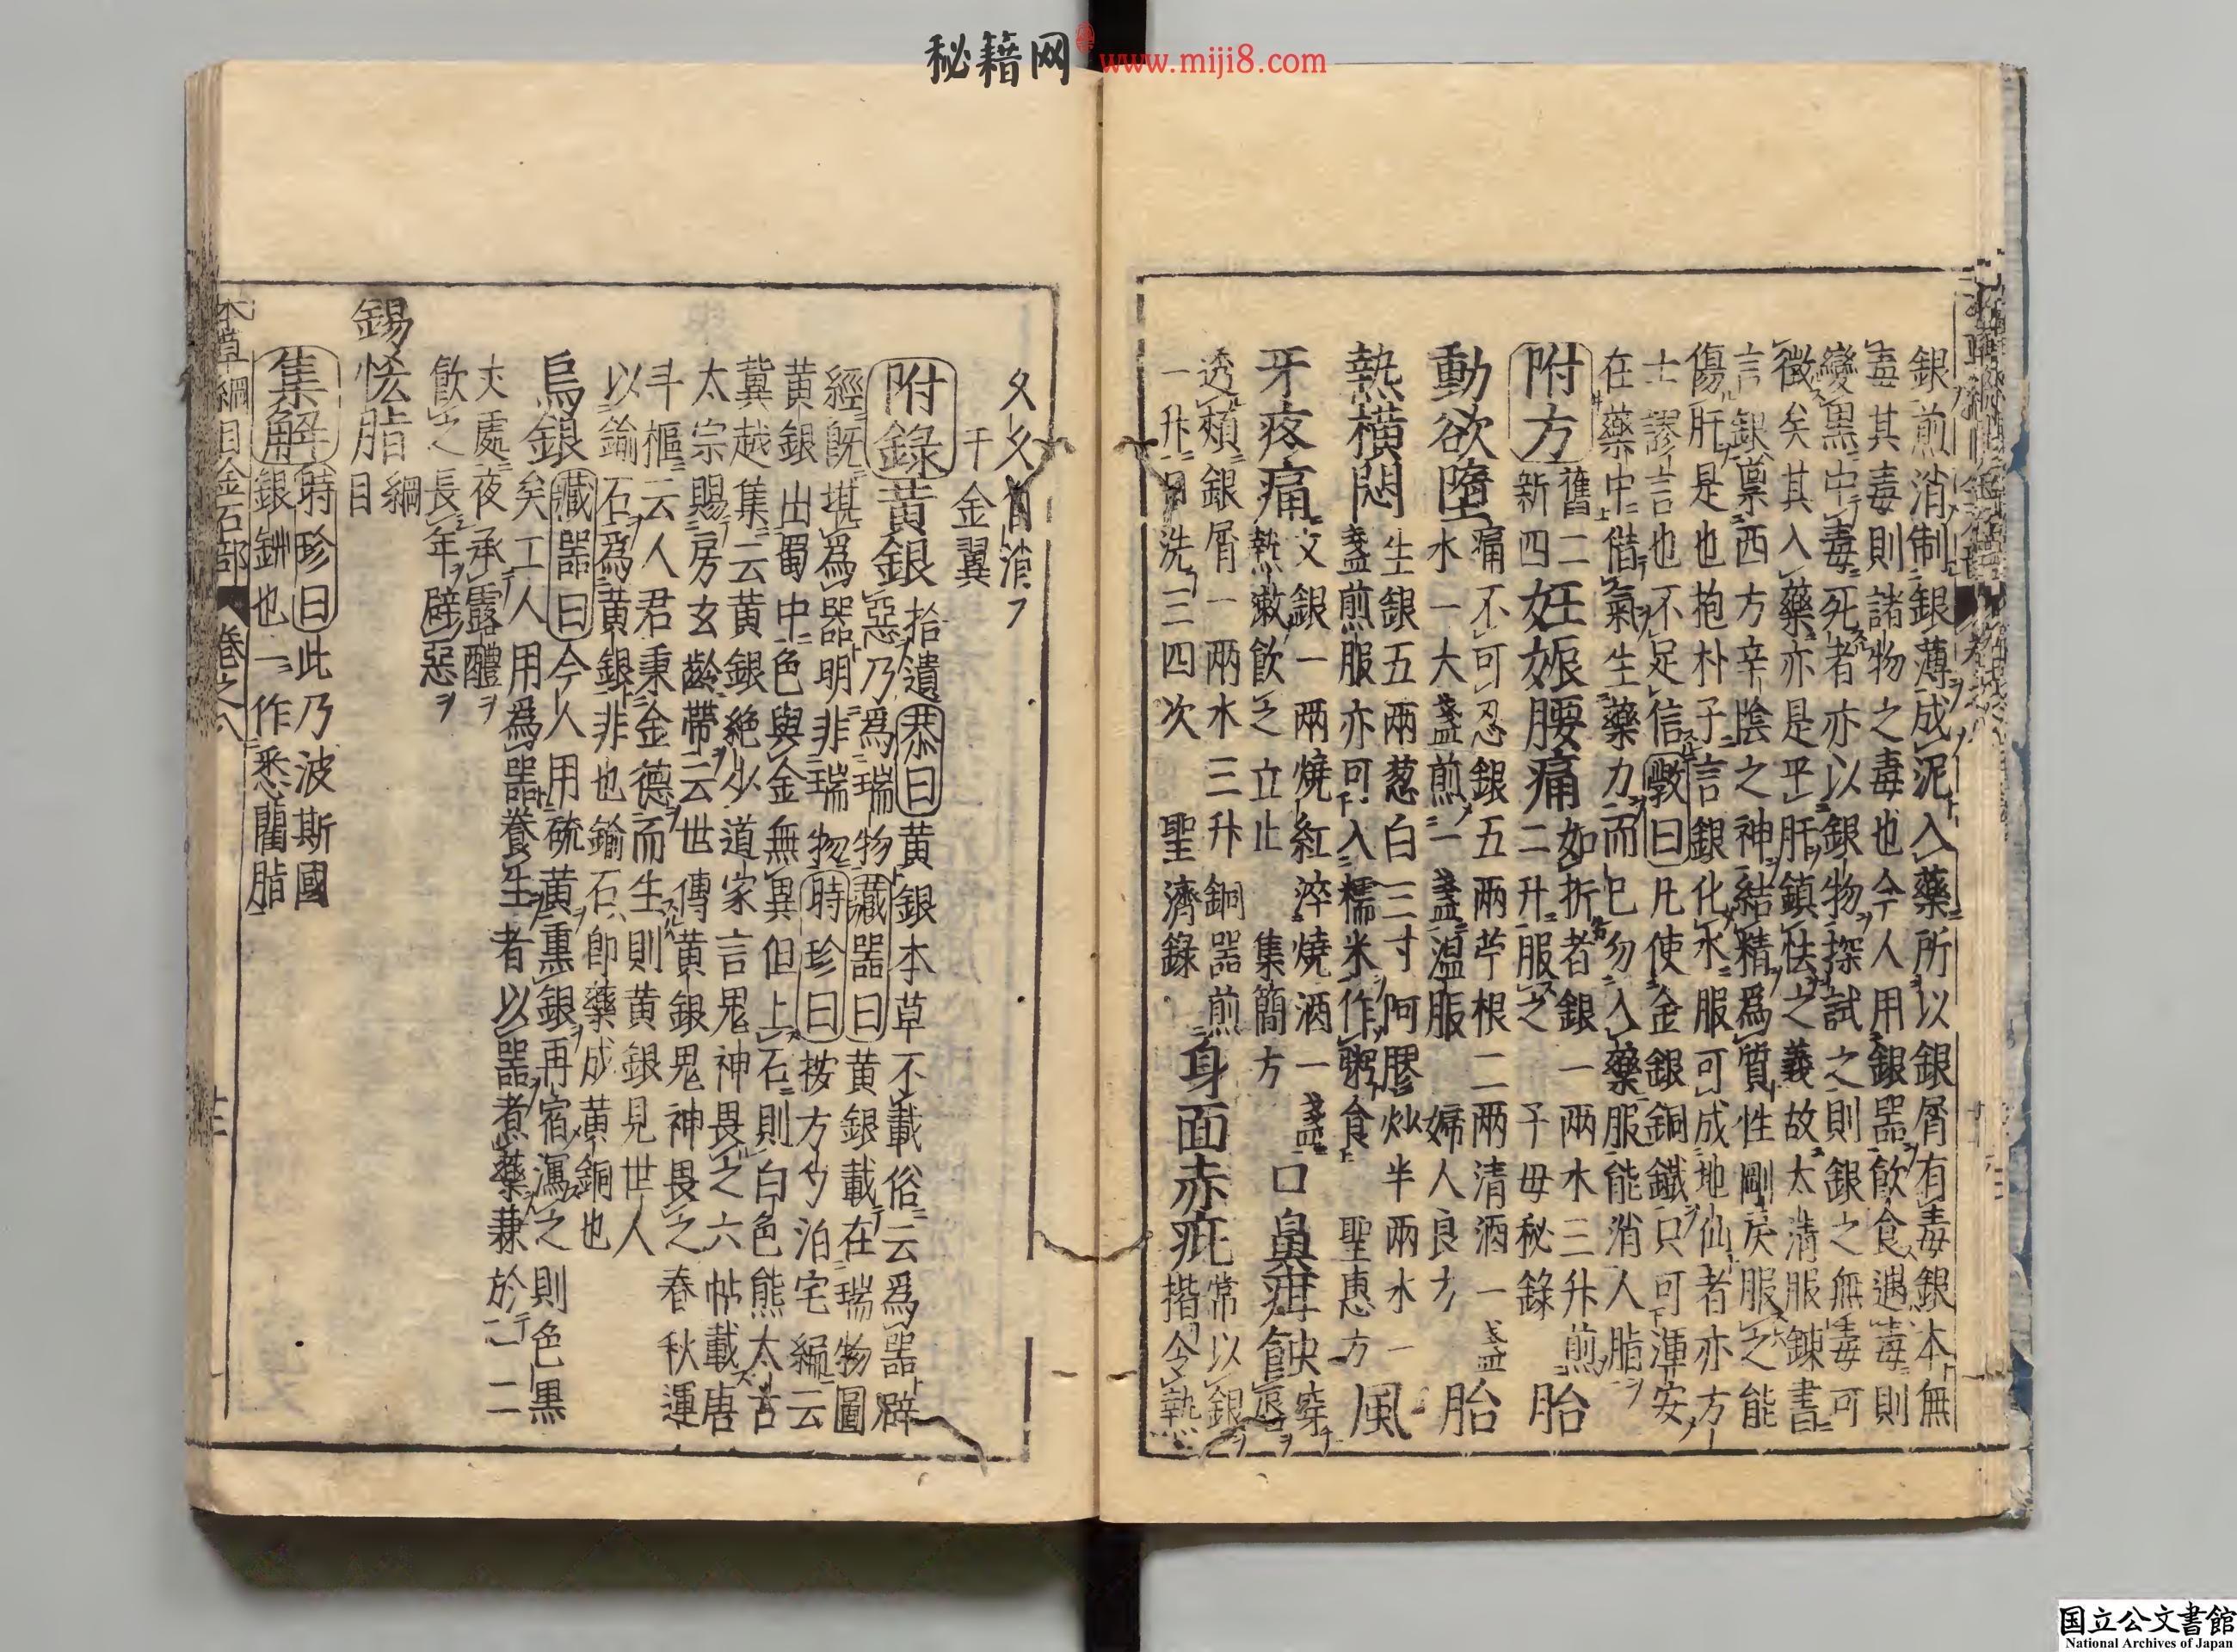 秘籍网 www.miji8.com
銀煎消制銀薄成泥入藥所以銀屑有毒銀本無
毒其毒則諸物之毒也今人用銀器飲食遇毒則
變黑中毒死者亦以銀物探試之則銀之無毒可
徵矣其入藥亦是平肝鎮怯之義故太清服錬書
言銀稟西方辛陰之神結精爲質性剛戾服之能
傷肝是也抱朴子言銀化水服可成地仙者亦方
士謬言也不足信斅曰凡使金銀銅鐵只可渾安
在藥中借氣生藥力而已勿入藥服能消人脂
附方舊二新四妊娠腰痛如折者銀一兩水三升煎二升服之子母秘錄胎
動欲墮痛不可忍銀五兩苧根二兩清酒一盞水一大盞煎一盞溫服婦人良方胎
熱橫悶生銀五兩葱白三寸阿膠炒半兩水一盞煎服亦可入糯米作粥食聖惠方風
牙疼痛文銀一兩燒紅淬燒酒一盞熱漱飲之立止集簡方口鼻疳蝕穿唇
透頰銀屑一兩水三升銅器煎一升日洗三四次聖濟錄身面赤疵常以銀揩令熱
久久自消
千金翼
附錄黃銀拾遺恭曰黃銀本草不載俗云爲器辟
惡乃爲瑞物藏器曰黃銀載在瑞物圖
經旣堪爲器明非瑞物時珍曰按方勺泊宅編云
黃銀出蜀中色與金無異但上石則白色熊太古
冀越集云黃銀絕少道家言鬼神畏之六帖載唐
太宗賜房玄齡帶云世傳黃銀鬼神畏之春秋運
斗樞云人君秉金德而生則黃銀見世人
以鍮石爲黃銀非也鍮石卽藥成黃銅也
烏銀藏器曰今人用硫黃熏銀再宿瀉之則色黑
矣工人用爲器養生者以器煮藥兼於二
丈處夜承露醴
飲之長年辟惡
錫恡脂綱目
集解時珍曰此乃波斯國
銀鉚也一作悉藺脂
本草綱目金石部 卷之八
国立公文書館
National Archives of Japan